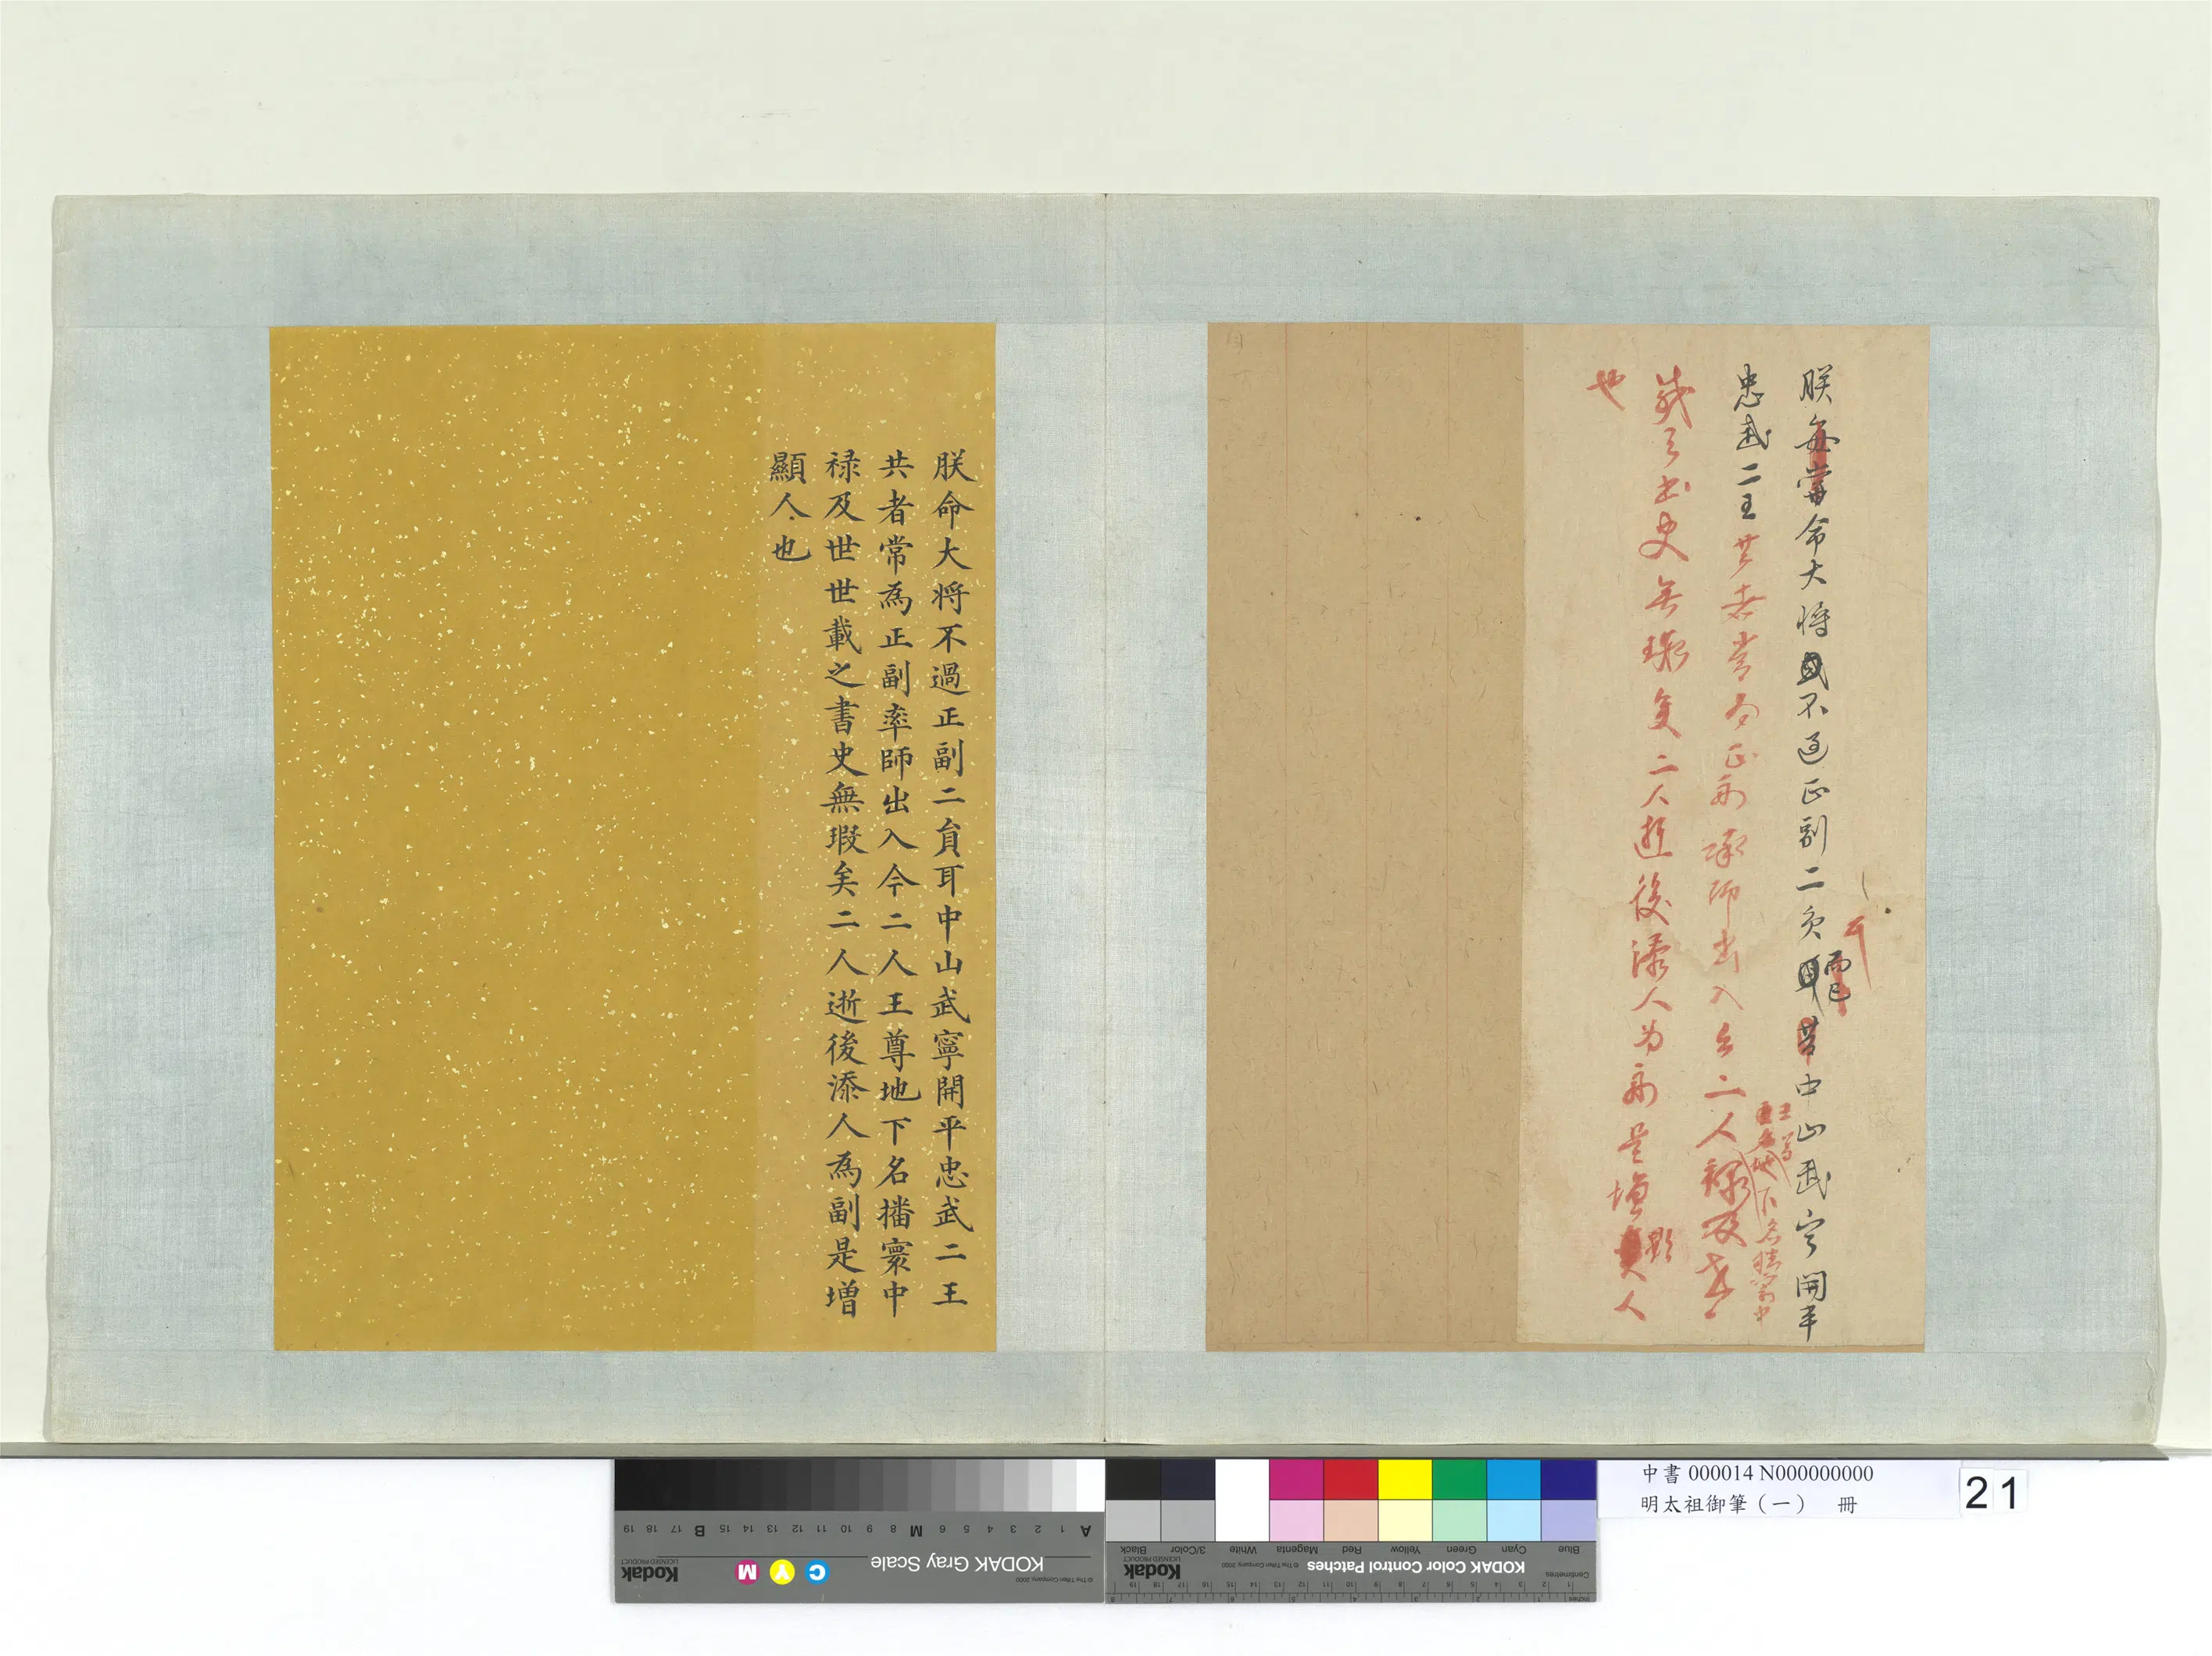 朕每當命大將不過正副二員而已昔中山武寧開平
耳
忠武二王共者常为正副率師出入今二人祿及世〻
王尊地下名播寰中
載之書史無瑕矣二人逝後添人为副是增顯人
也
朕命大將不過正副二貟耳中山武寧開平忠武二王
共者常為正副率師出入今二人王尊地下名播寰中
禄及世世載之書史無瑕矣二人逝後添人為副是增
顯人也
中書000014 N000000000
明太祖御筆（一） 冊
21
KODAK Gray Scale
Kodak
LICENSED PRODUCT
C Y M
© The Tiffen Company, 2000
A 1 2 3 4 5 6 M 8 9 10 11 12 13 14 15 B 17 18 19
KODAK Color Control Patches
Kodak
LICENSED PRODUCT
© The Tiffen Company, 2000
Blue Cyan Green Yellow Red Magenta White 3/Color Black
Centimetres
Inches